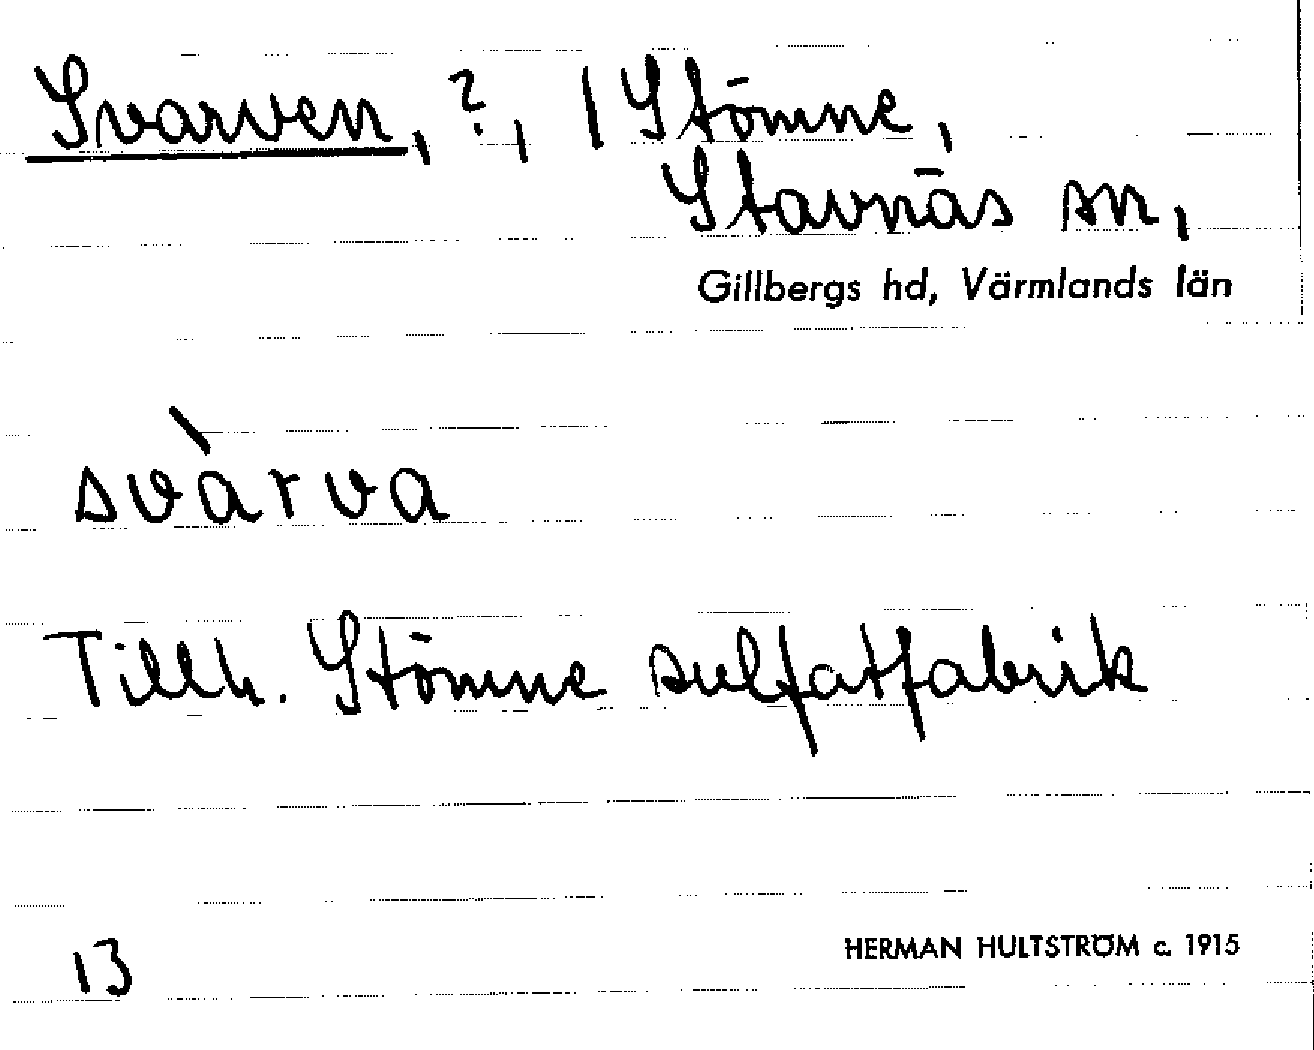 Svarven, ?, 1 Stömne,
Stavnäs sn,
Gillbergs hd, Värmlands län
svàrva
Tillh. Stömne sulfatfabrik
13
HERMAN HULTSTRÖM c. 1915